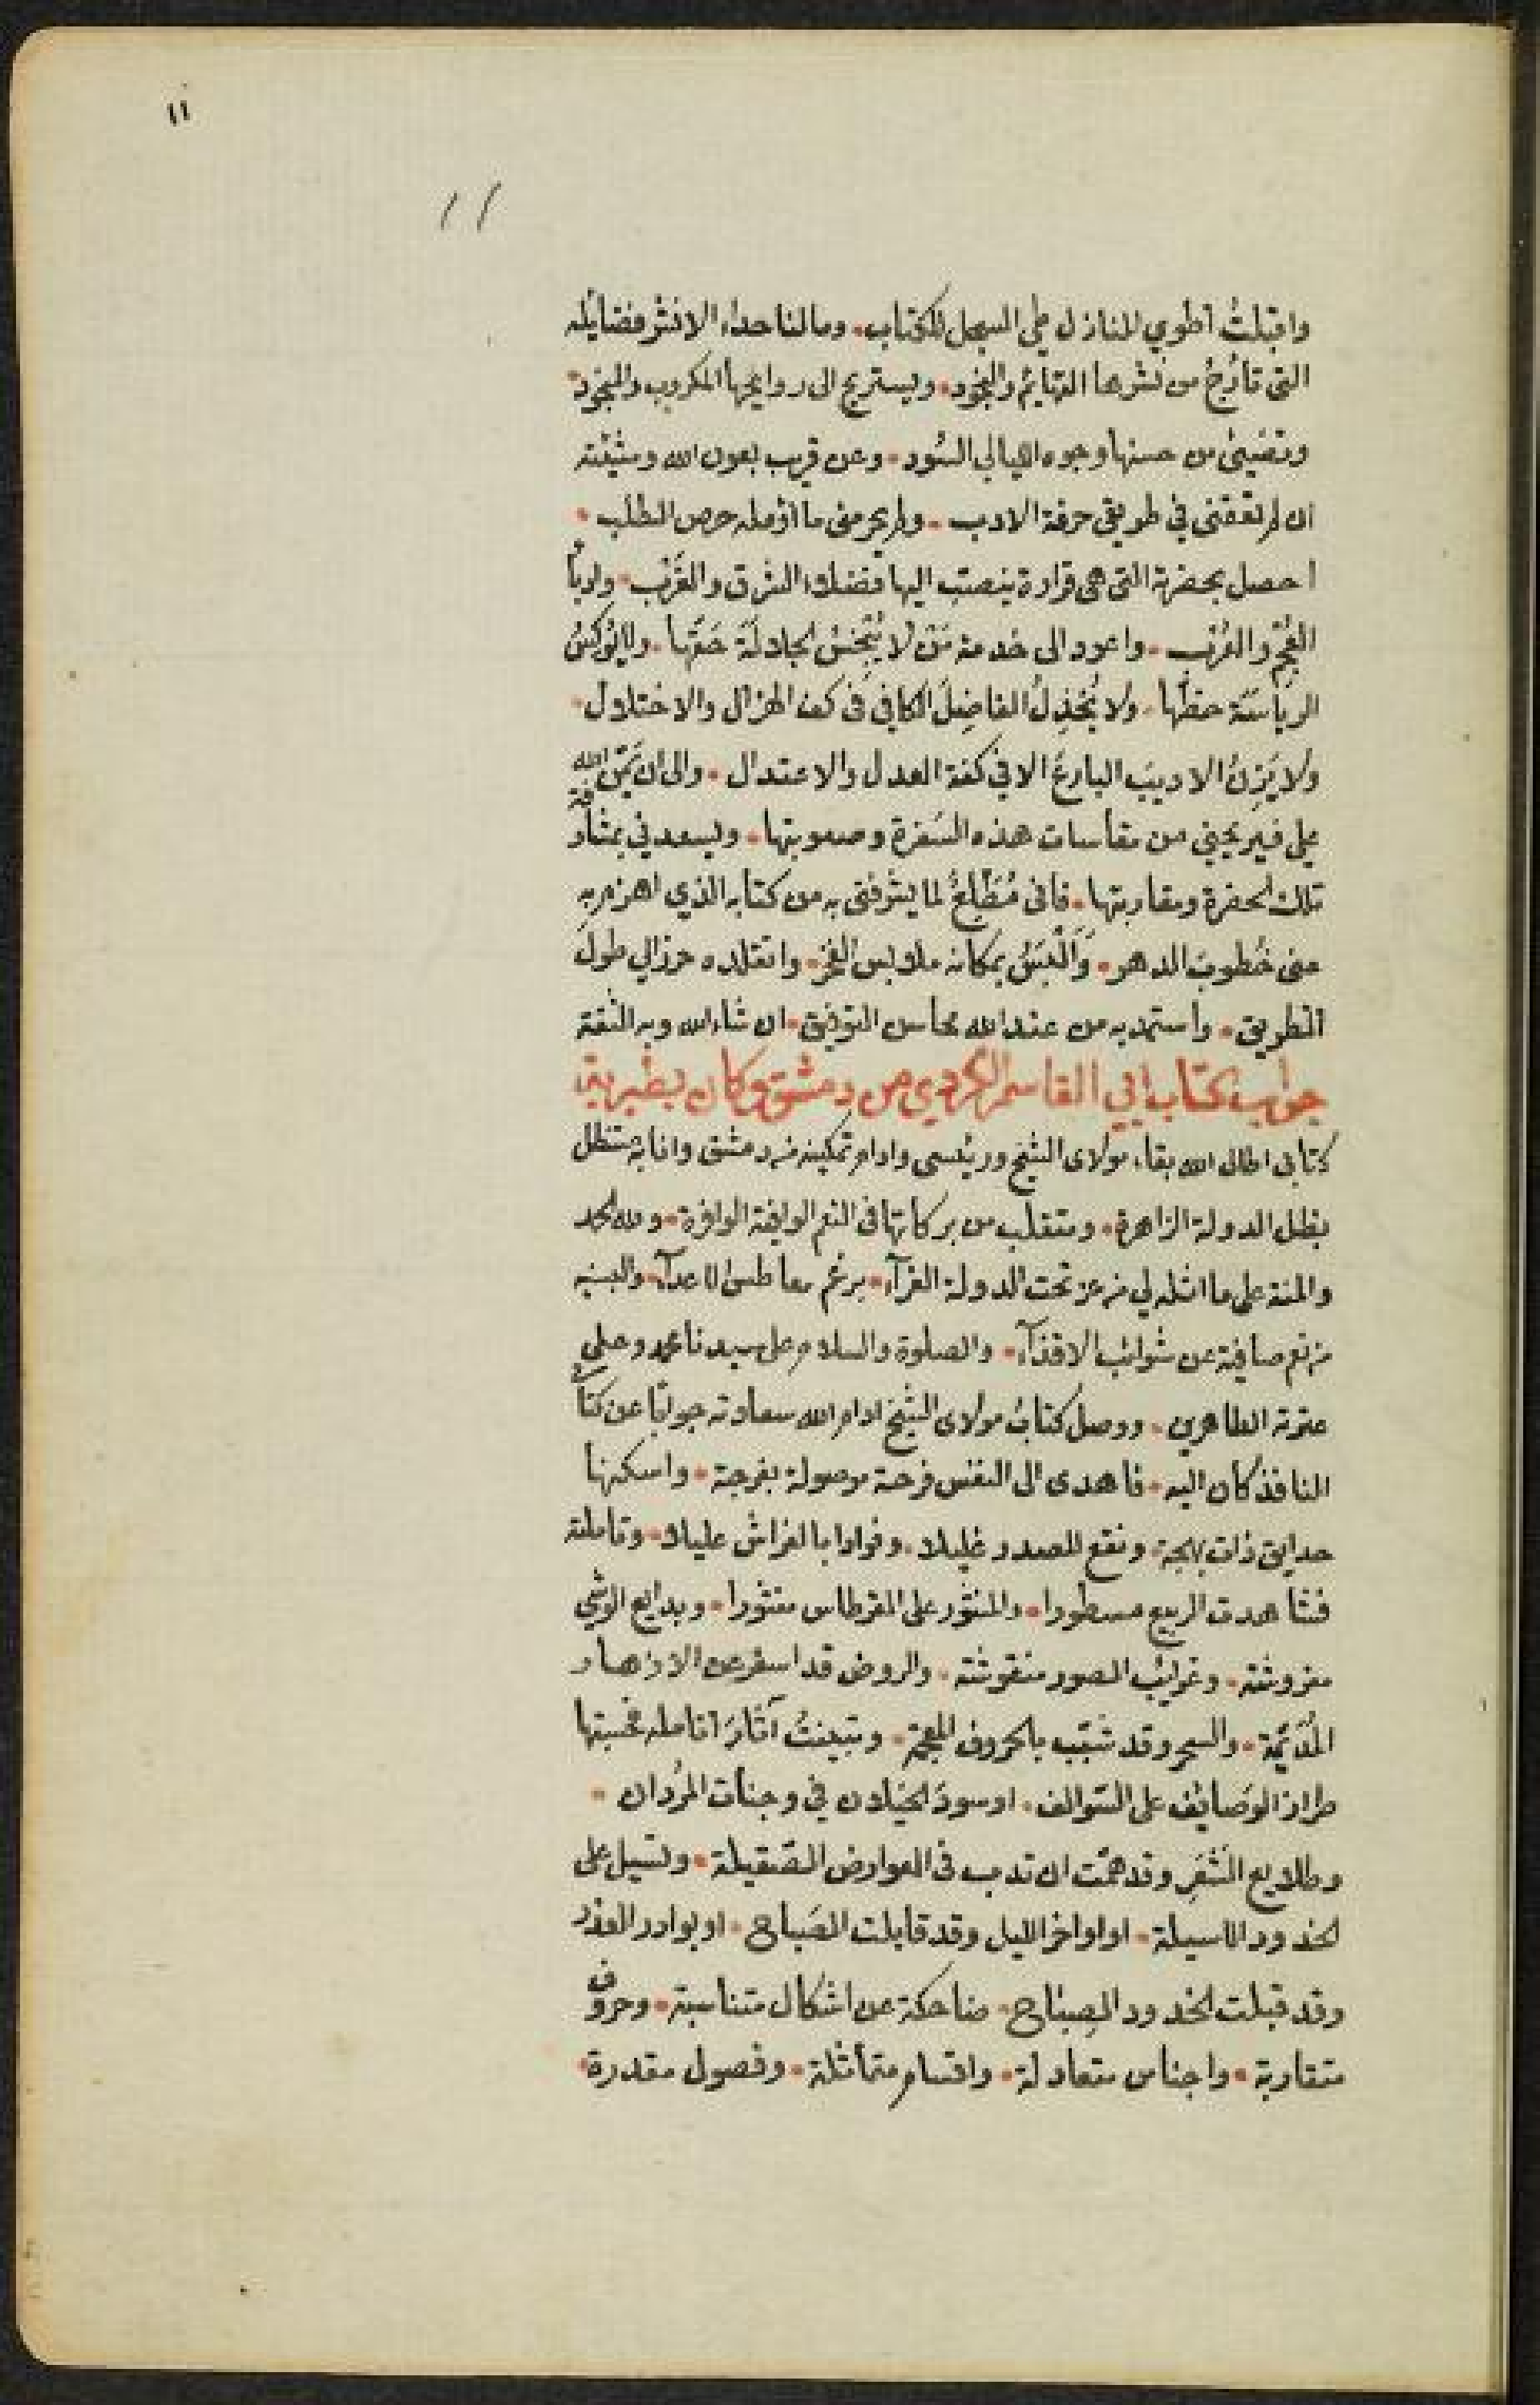 ١١
11
واقبلتُ اطوي المنازل طي السجل للكتاب • وما لنا حداء الا نشر فضايله
التي تأرجُ من نشرها التهايم والنجود • ويستريح الى روايحها المكروب والمنجود •
وتضيئ من حسنها وجوه الليالي السُود • وعن قريب بعون الله ومشيئته
ان لم تعقني في طريقي حرفة الادب • ولم يحرمني ما اؤمله حرص الطلب •
احصل بحضرة التي هي قرارة ينصب اليها فضلاء الشرق والغَرْب • وادباء
العُجْم والعُرْب • واعود الى خدمة مَن لا يُبْخسُ الجلالة حَقَّها • ولا يُوكسُ
الرياسَة حظّها • ولا يُخذِلُ الفاضِلَ الكافي في كف الهزال والاختلال •
ولا يَزِنُ الاديبَ البارعَ الا في كفة العدل والاعتدال • والى ان يَمُنّ الله
علي فيريحني من مقاسات هذه السَفرة وصعوبتها • ويسعدني بمشارفة
تلك الحضرة ومقاربتها • فاني مُتَطَلِّعٌ لما يشرفني به من كتابه الذي اهزم به
عني خُطوبَ الدهر • وَاَلْبَسُ بمكانه ملابس الفخر • واتقلده حرزا لي طولَ
الطريق • واستمد به من عند الله محاسن التوفيق • ان شاء الله وبه الثقة
جواب كتاب ابي القاسم الكردي من دمشق وكان بطبرية
كتابي اطال الله بقاء مولاى الشيخ ورئيسى وادام تمكينه من دمشق وانا به مستظل
بظل الدولة الزاهرة • ومتقلب من بركاتها فى النعم الوافية الوافرة • ولله الحمد
والمنة على ما انله لي من عز تحت الدولة الغرآء • برغم معاطس الاعدآء • والبسنيه
من نعم صافية عن شوائب الاقذآء • والصلوة والسلام على سيدنا محمد وعلى
عترته الطاهرين • ووصل كتابُ مولاى الشيخ ادام الله سعادته جوابًا عن كتابي
النافذ كان اليه • فاهدى الى النفس فرحة موصولة بفرجة • واسكنها
حدايق ذات بهجة • ونقع للصدر غليلا • وفوادا بالفراش عليلا • وتاملته
فشاهدت الربيع مسطورا • والمنثور على القرطاس منثورا • وبدايع الوشي
مفروشة • وغرايب الصور منقوشة • والروض قد اسفر عن الازهار
• والسحر وقد شبّب بالحروف المعجمة • وتبينتُ آثارَ انامله فحسبتها
طراز الوَصائف على السّوالف • او سودَ الخيلان في وجنات المُردان •
وطلايع الشعَر وقد همّت ان تدب فى العوارض الصقيلة • وتسيل على
الخدود الاسيلة • او اواخر الليل وقد قابلت الصَباح • او بوادر العذار
وقد قبلت الخدود الصِباح • ضاحكة عن اشكال متناسبة • وحروف
متقاربة • واجناس متعادلة • واقسام متماثلة • وفصول مقدرة •